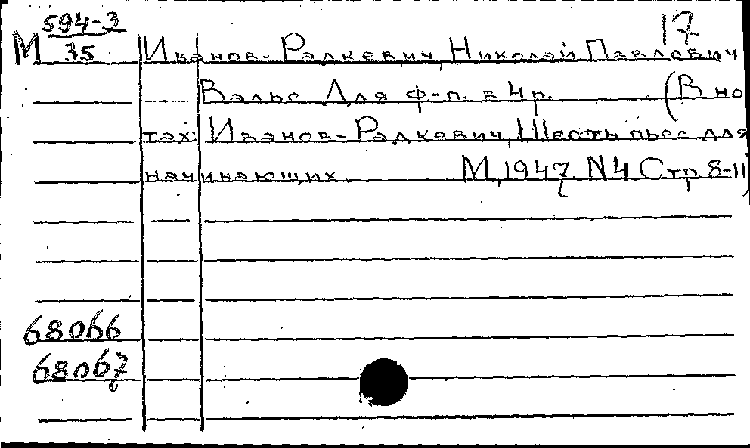 594-3 17
М 35 Иванов-Радкевич, Николай Павлович
Вальс Для ф-п. в 4 р. (В но
тах: Иванов-Радкевич, Шесть пьес для
начинающих М, 1947 N4 Стр 8-11)
68066
68067